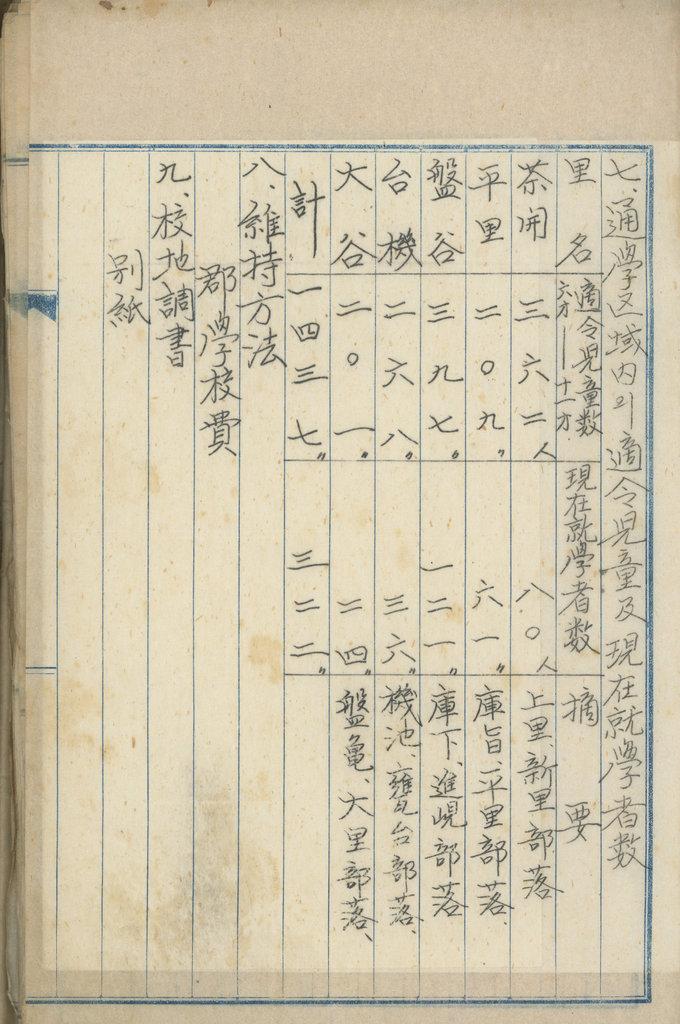 七、通學区域内의適令児童及現在就學者数
里名 適令児童数 六才—十一才 現在就學者数 摘要
茶開 三六二人 八〇人 上里、新里部落
平里 二〇九〃 六一〃 庫旨、平里部落、
盤谷 三九七〃 一二一〃 庫下、進峴部落
台機 二六八〃 三六〃 機池、甕台部落、
大谷 二〇一〃 二四〃 盤亀、大里部落、
計 一四三七〃 三二二〃
八、維持方法
郡學校費
九、校地調書
別紙